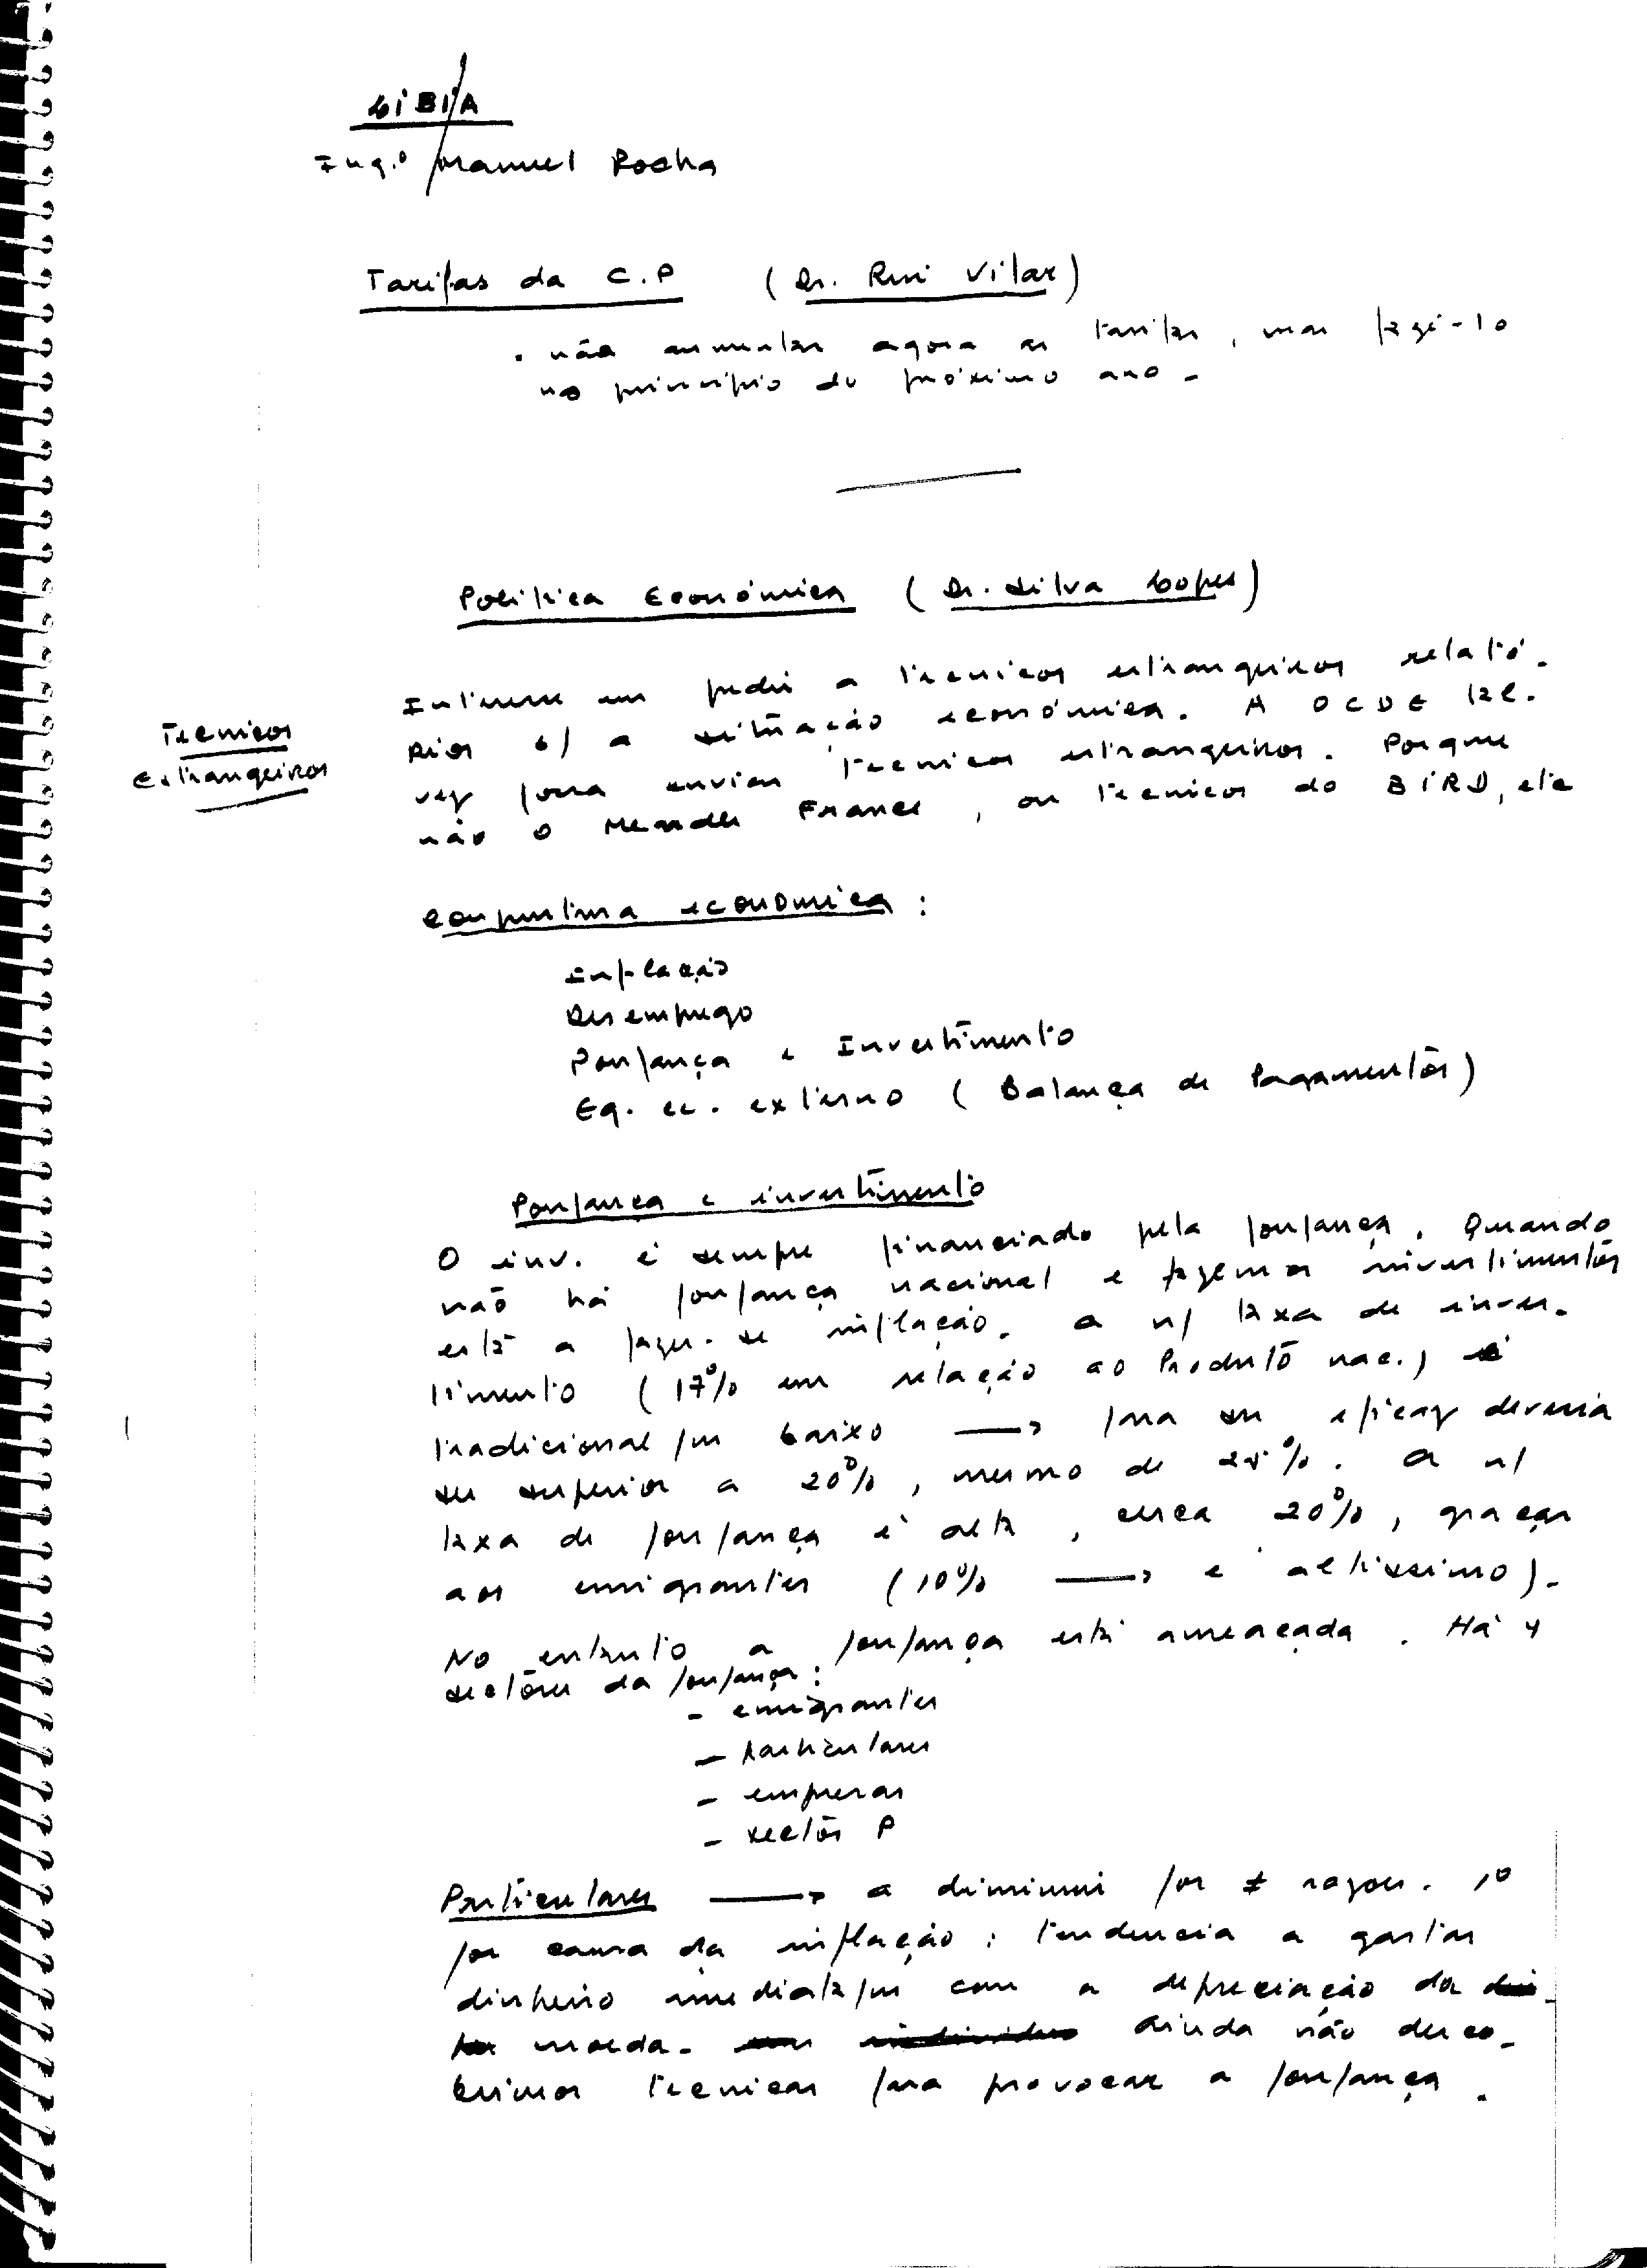 LíBIA
Eng.º Manuel Rocha
Tarifas da C.P (Dr. Rui Vilar)
. não aumentar agora as tarifas, mas fazê-lo
no princípio do próximo ano -
Política Económica (Dr. Silva Lopes)
Técnicos
Estrangeiros
Interesse em pedir a técnicos estrangeiros relató-
rios s/ a situação económica. A OCDE tal-
vez possa enviar técnicos estrangeiros. Porque
não o Mendes France, ou técnicos do BIRD, etc
Conjuntura económica :
Inflação
Desemprego
Poupança e Investimento
Eq. ec. externo (Balança de Pagamentos)
Poupança e investimento
O inv. é sempre financiado pela poupança. Quando
não há poupança nacional e fazemos investimentos
está a fazer-se inflação. A n/ taxa de inves-
timento (17% em relação ao Produto nac.) é
tradicional/ baixo → para ser eficaz deveria
ser superior a 20%, mesmo de 25%. A n/
taxa de poupança é alta, cerca 20%, graças
aos emigrantes (10% → é altíssimo).
No entanto a poupança está ameaçada. Há 4
sectores da poupança :
- emigrantes
- particulares
- empresas
- sector P
Particulares → a diminuir por ≠ razões. 1º
por causa da inflação : tendência a gastar
dinheiro imediata/ com a depreciação da
moeda. Ainda não desco-
brimos técnicas para provocar a poupança.